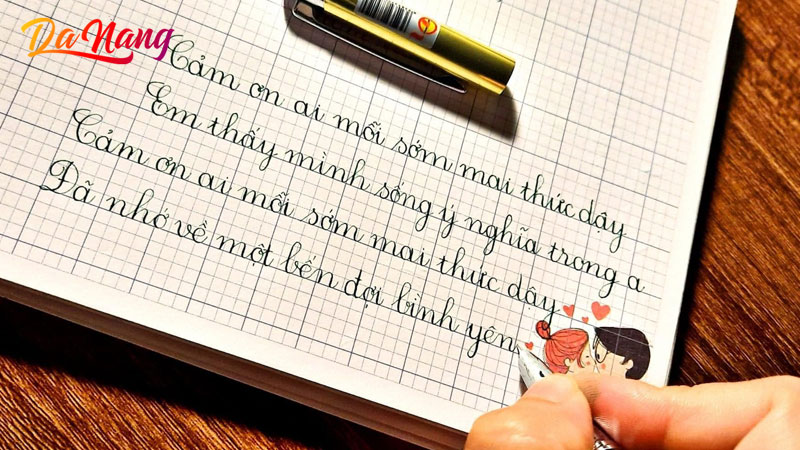 Da Nang
Cảm ơn ai mỗi sớm mai thức dậy
Em thấy mình sống ý nghĩa trong a
Cảm ơn ai mỗi sớm mai thức dậy
Đã nhớ về một bến đợi bình yên